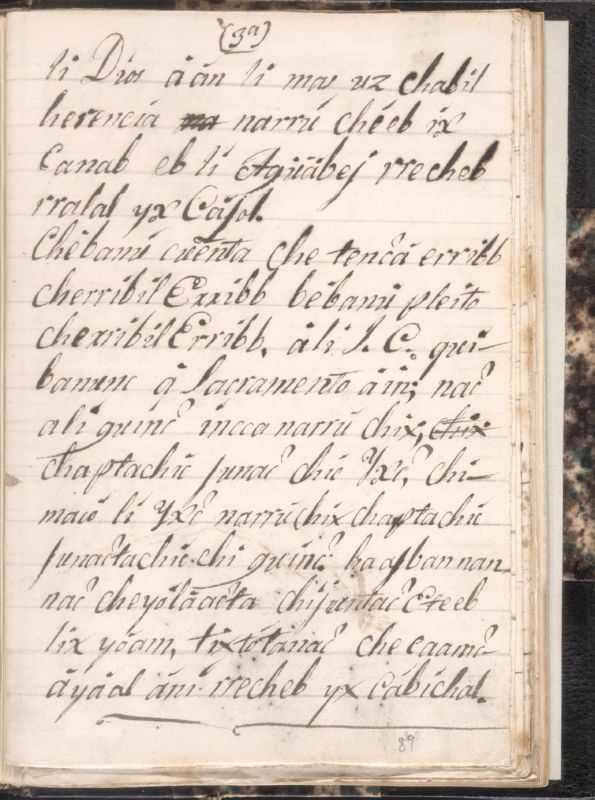 (3a)
li Dios äàn li mas uz chabil
herencia ma narrú chéeb ix
canab eb li Agüäbej rrecheb
rralal yx Cäjol.
Chébanú cuenta che tenc̃ä erribb
cherribil Erribb bébanú pleito
cherribil Erribb, äli S. C. qui-
banunc ä Sacramento äin, nac̃
ali quinc̃ incca narrú chix, chix
chaptachic junac̃ chic Yxc̃, chi-
macö li Yxc̃ narrú chix chaptachic
junac̃tachic chi quinc̃ haajbannan-
nac̃ cheyölääc̃ta chijuntac̃ Eteeb
lix yöam, tixtotanac̃ che caamc̃
äyäal äni rrecheb yx Cäbichal.
89